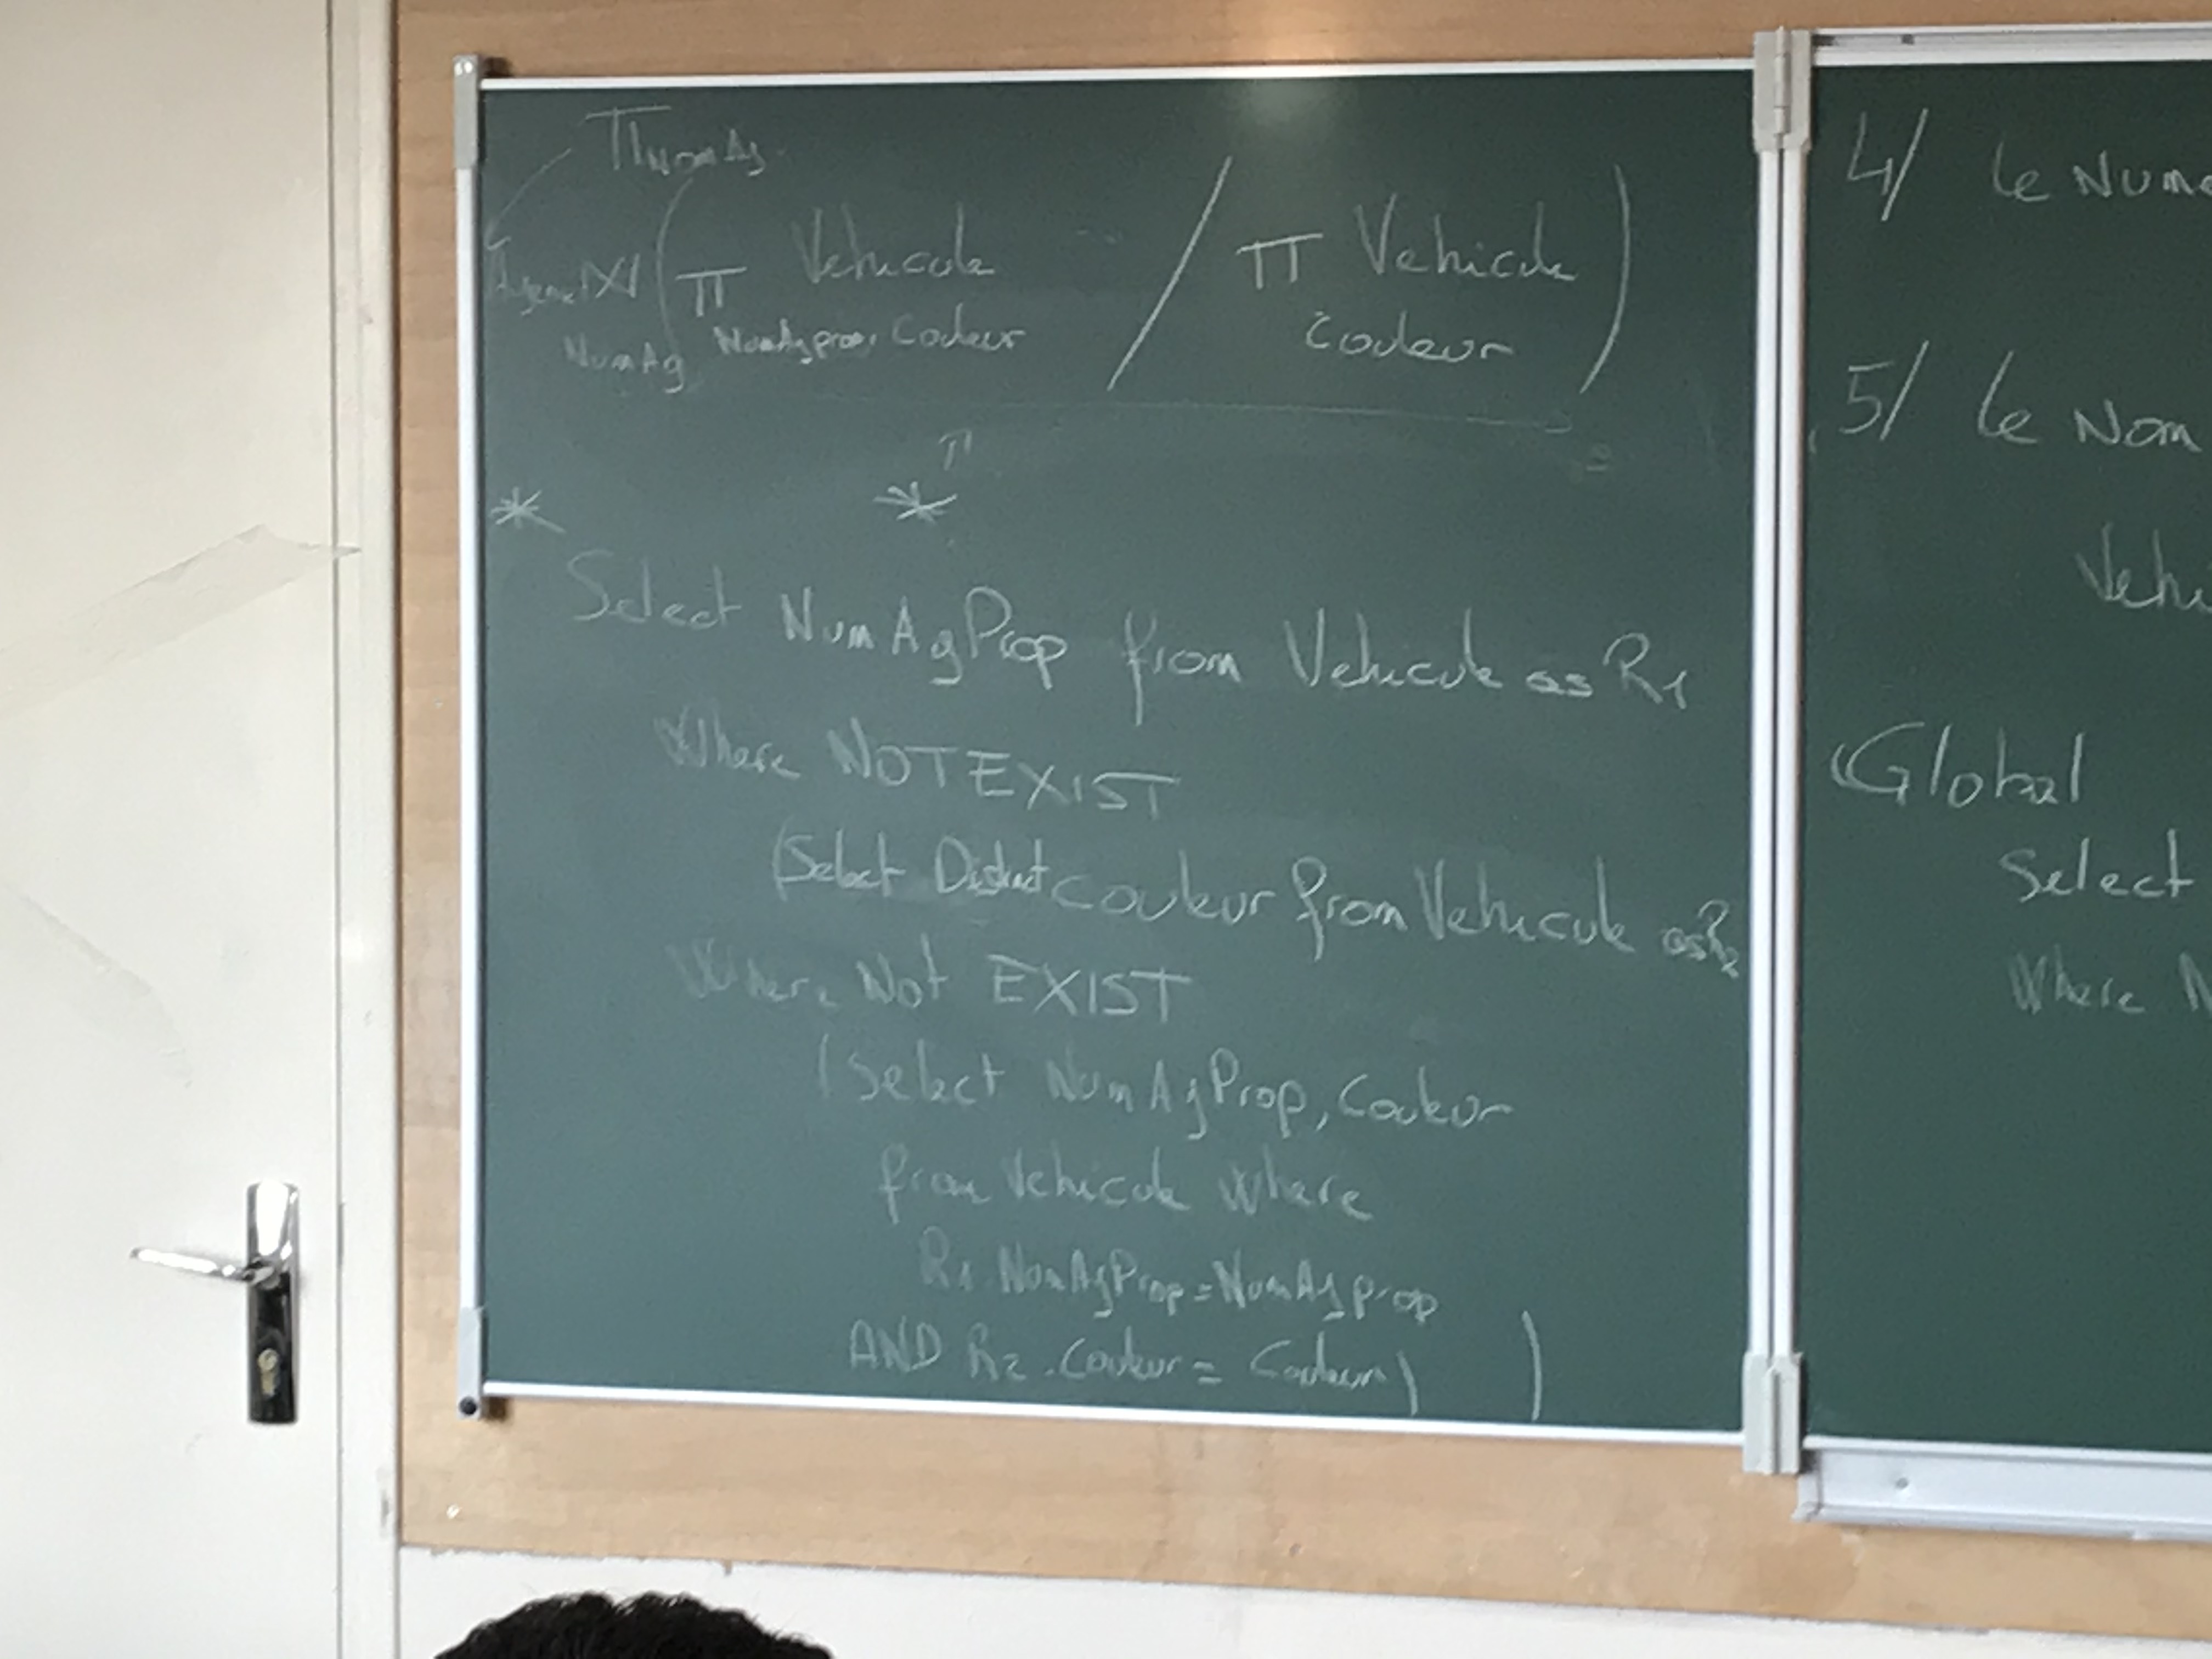 Π NomAg
Agence ⋈ ( Π Vehicule / Π Vehicule )
NumAg NumAgprop, Couleur Couleur
Π
* *
Select NumAgProp from Vehicule as R1
Where NOT EXIST
(Select Distinct couleur from Vehicule as R2
Where Not EXIST
(Select NumAgProp, Couleur
from Vehicule Where
R1.NumAgProp = NumAgprop
AND R2.Couleur = Couleur) )
4/ Le Numé
5/ Le Nom
Vehi
Global
Select
Where N